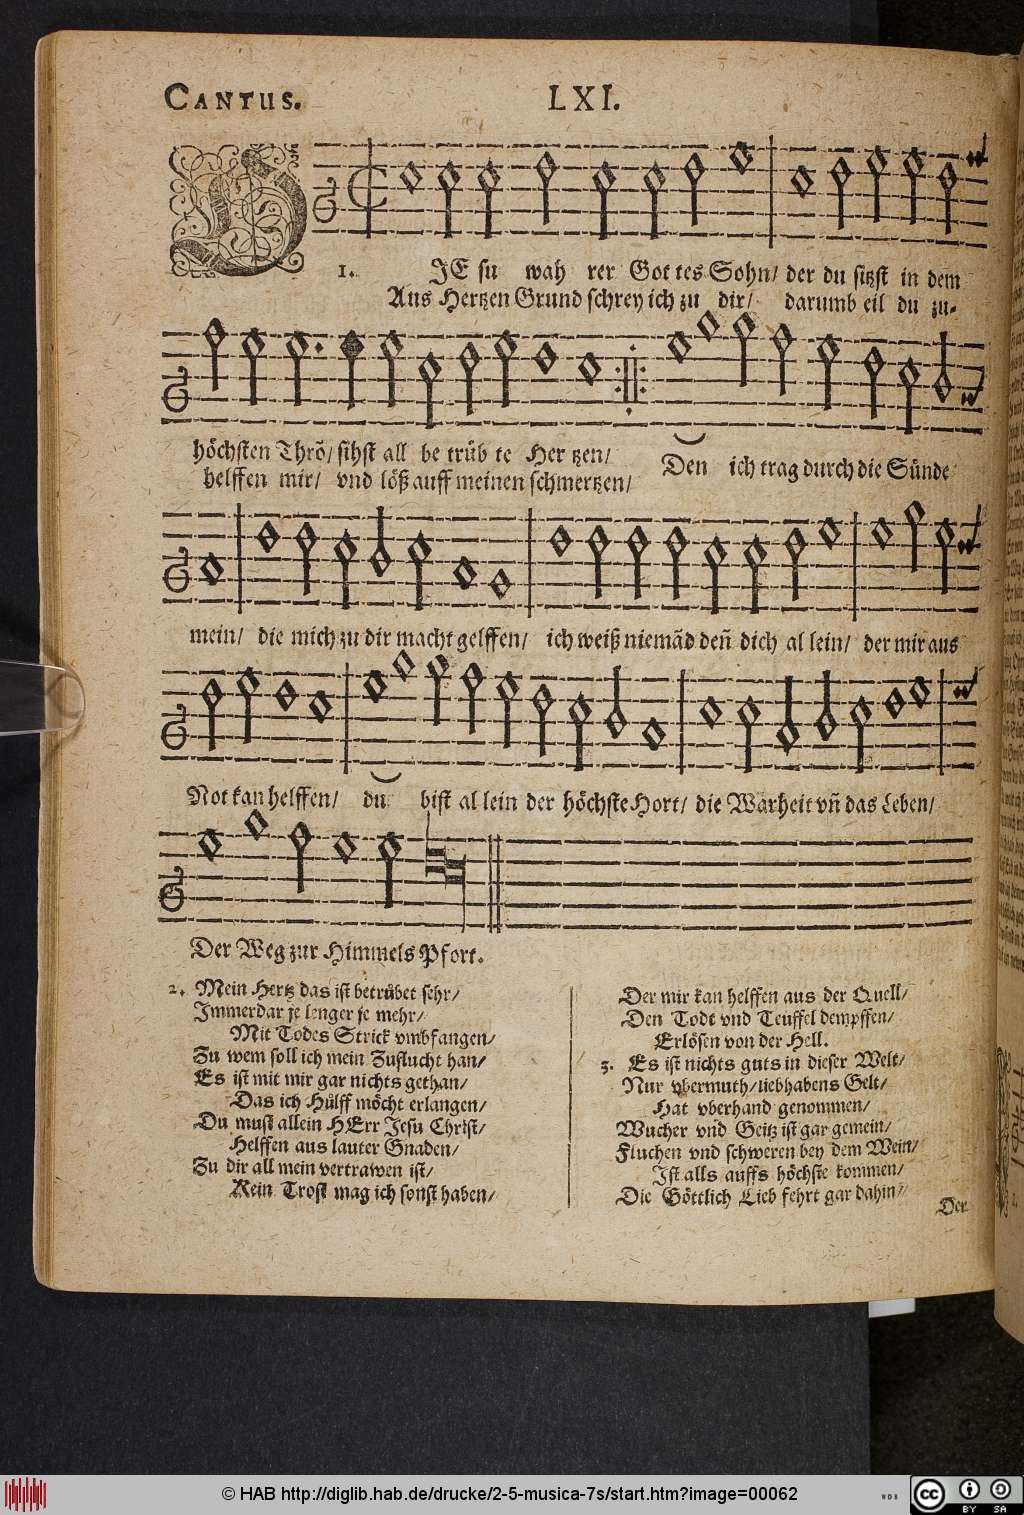 CANTUS.
LXI.
1. O JE su wah rer Got tes Sohn/ der du sitzst in dem
Aus Hertzen Grund schrey ich zu dir/ darumb eil du zu-
höchsten Thrõ/ sihst all be trüb te Her tzen/ Den ich trag durch die Sünde
helffen mir/ vnd löß auff meinen schmertzen/
mein/ die mich zu dir macht gelffen/ ich weiß niemãd deñ dich al lein/ der mir aus
Not kan helffen/ du bist al lein der höchste Hort/ die Warheit vñ das Leben/
Der Weg zur Himmels Pfort.
2. Mein Hertz das ist betrübet sehr/
Immerdar je lenger je mehr/
Mit Todes Strick vmbfangen/
Zu wem soll ich mein Zuflucht han/
Es ist mit mir gar nichts gethan/
Das ich Hülff möcht erlangen/
Du must allein HErr Jesu Christ/
Helffen aus lauter Gnaden/
Zu dir all mein vertrawen ist/
Kein Trost mag ich sonst haben/
Der mir kan helffen aus der Quell/
Den Todt vnd Teuffel dempffen/
Erlösen von der Hell.
3. Es ist nichts guts in dieser Welt/
Nur vbermuth/ liebhabens Gelt/
Hat vberhand genommen/
Wucher vnd Geitz ist gar gemein/
Fluchen vnd schweren bey dem Wein/
Ist alls auffs höchste kommen/
Die Göttlich Lieb fehrt gar dahin/
Der
© HAB http://diglib.hab.de/drucke/2-5-musica-7s/start.htm?image=00062
WDB
cc BY SA